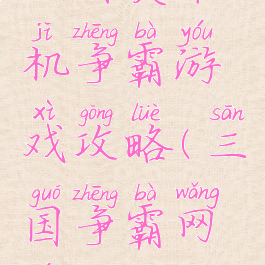 jī zhēng bà yóu
机争霸游
xì gōng lüè sān
戏攻略(三
guó zhēng bà wǎng
国争霸网